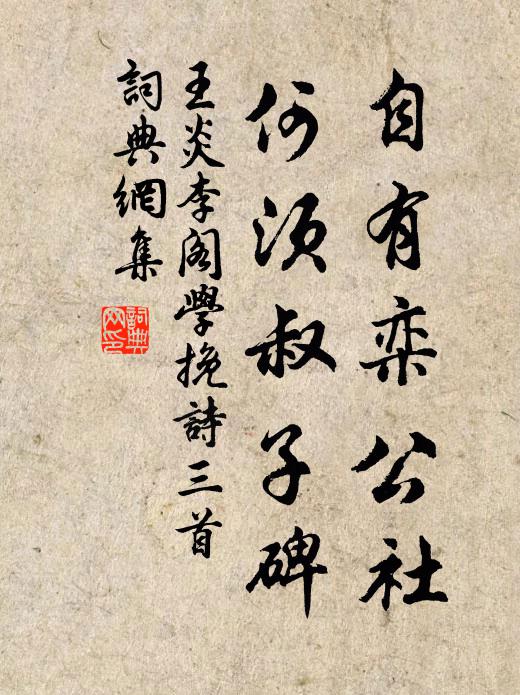 自有栾公社
何須叔子碑
王炎李阁學挽詩三首
詞典網集
詞典网印